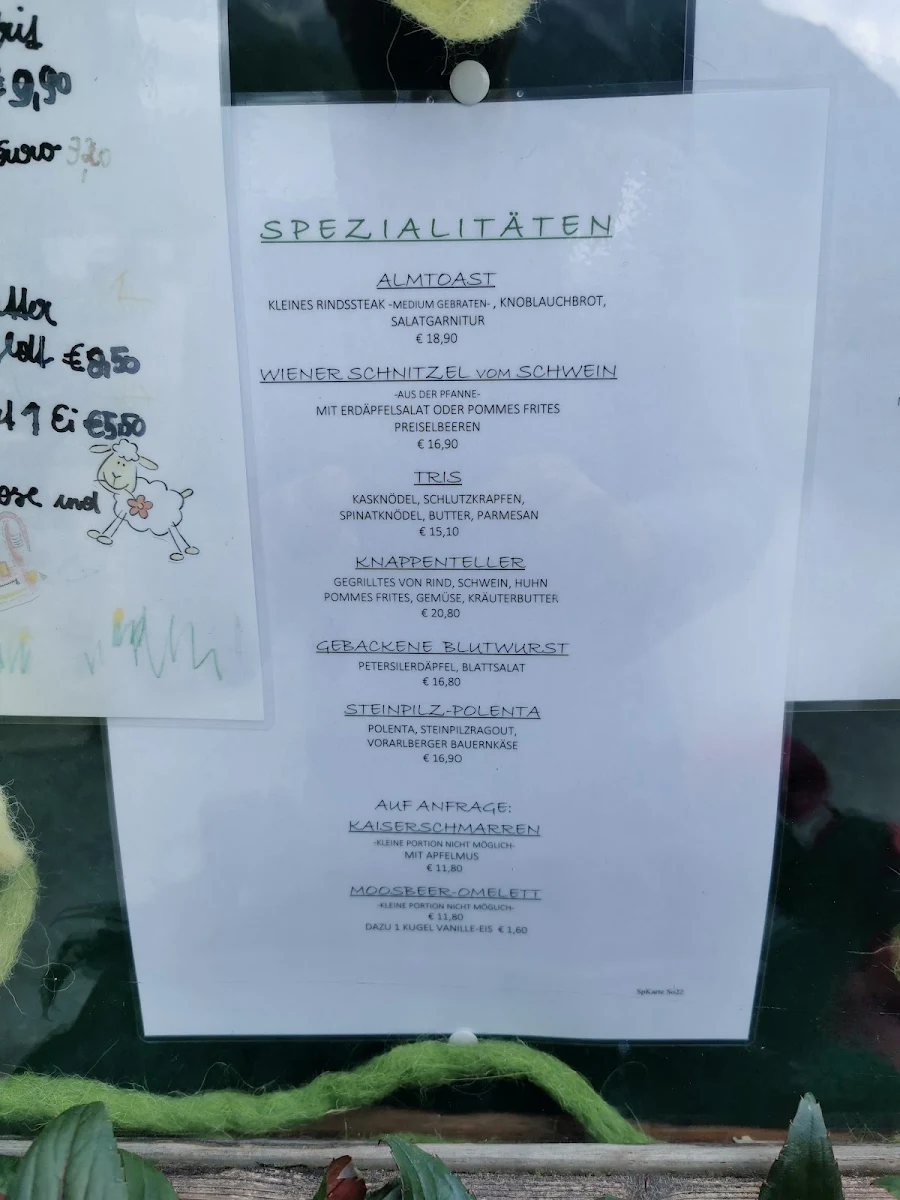 € 9,90
Euro
€8,50
1 Ei €5,50
und
SPEZIALITÄTEN
ALMTOAST
KLEINES RINDSSTEAK -MEDIUM GEBRATEN- , KNOBLAUCHBROT,
SALATGARNITUR
€ 18,90
WIENER SCHNITZEL VOM SCHWEIN
-AUS DER PFANNE-
MIT ERDÄPFELSALAT ODER POMMES FRITES
PREISELBEEREN
€ 16,90
TRIS
KASKNÖDEL, SCHLUTZKRAPFEN,
SPINATKNÖDEL, BUTTER, PARMESAN
€ 15,10
KNAPPENTELLER
GEGRILLTES VON RIND, SCHWEIN, HUHN
POMMES FRITES, GEMÜSE, KRÄUTERBUTTER
€ 20,80
GEBACKENE BLUTWURST
PETERSILERDÄPFEL, BLATTSALAT
€ 16,80
STEINPILZ-POLENTA
POLENTA, STEINPILZRAGOUT,
VORARLBERGER BAUERNKÄSE
€ 16,90
AUF ANFRAGE:
KAISERSCHMARREN
-KLEINE PORTION NICHT MÖGLICH-
MIT APFELMUS
€ 11,80
MOOSBEER-OMELETT
-KLEINE PORTION NICHT MÖGLICH-
€ 11,80
DAZU 1 KUGEL VANILLE-EIS € 1,60
SpKarte So22